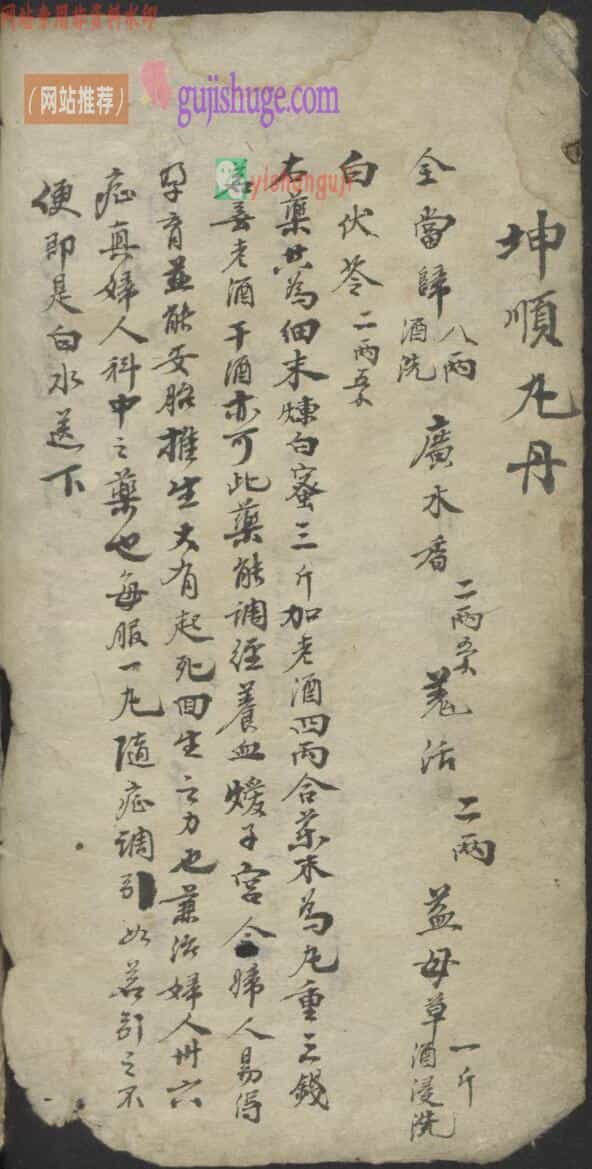 网站专用非资料水印
(网站推荐)
gujishuge.com
yishanguji
坤順丸丹
全當歸 八兩 酒洗 廣木香 二兩五錢 羌活 二兩 益母草 一斤 酒浸洗
白伏苓 二兩五錢
右藥共為細末煉白蜜三斤加老酒四兩合藥末為丸重三錢
若無老酒干酒亦可此藥能調經養血煖子宮令婦人易得
孕育並能安胎推生大有起死回生之力也兼治婦人卅六
症真婦人科中之藥也每服一丸隨症調引如若引之不
便即是白水送下